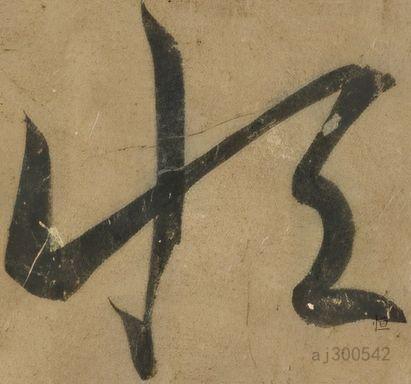 恒
恒
aj300542